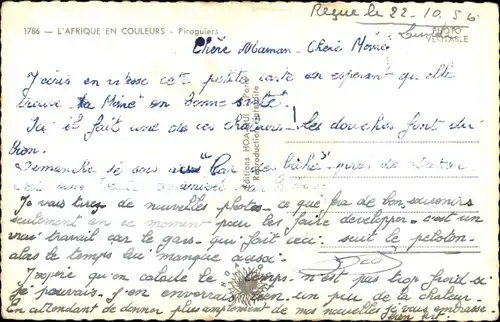 Reçue le 22-10.56
Lundi
1786 — L'AFRIQUE EN COULEURS - Piroguiers
PHOTO VÉRITABLE
Chère Maman - Chère Mémé
J'écris en vitesse cette petite carte en esperant qu'elle
trouve la Mémé en bonne santé.
Ici il fait une de ces chaleurs! les douches font du
bien.
Demanche je suis
Éditions HOA-QUI
Reproduction interdite
Je vous tire de nouvelles photos - ce que fera de bons souvenirs
seulement en ce moment pour les faire developper - c'est un
vrai travail car le gars qui fait ceci suit le peloton
alors le temps lui manque aussi.
J'espère qu'en le temps n'est pas trop froid si
Je pouvais j'en enverrais bien un peu de la chaleur
En attendant de donner plus amplement de mes nouvelles je vous embrasse
bien fort